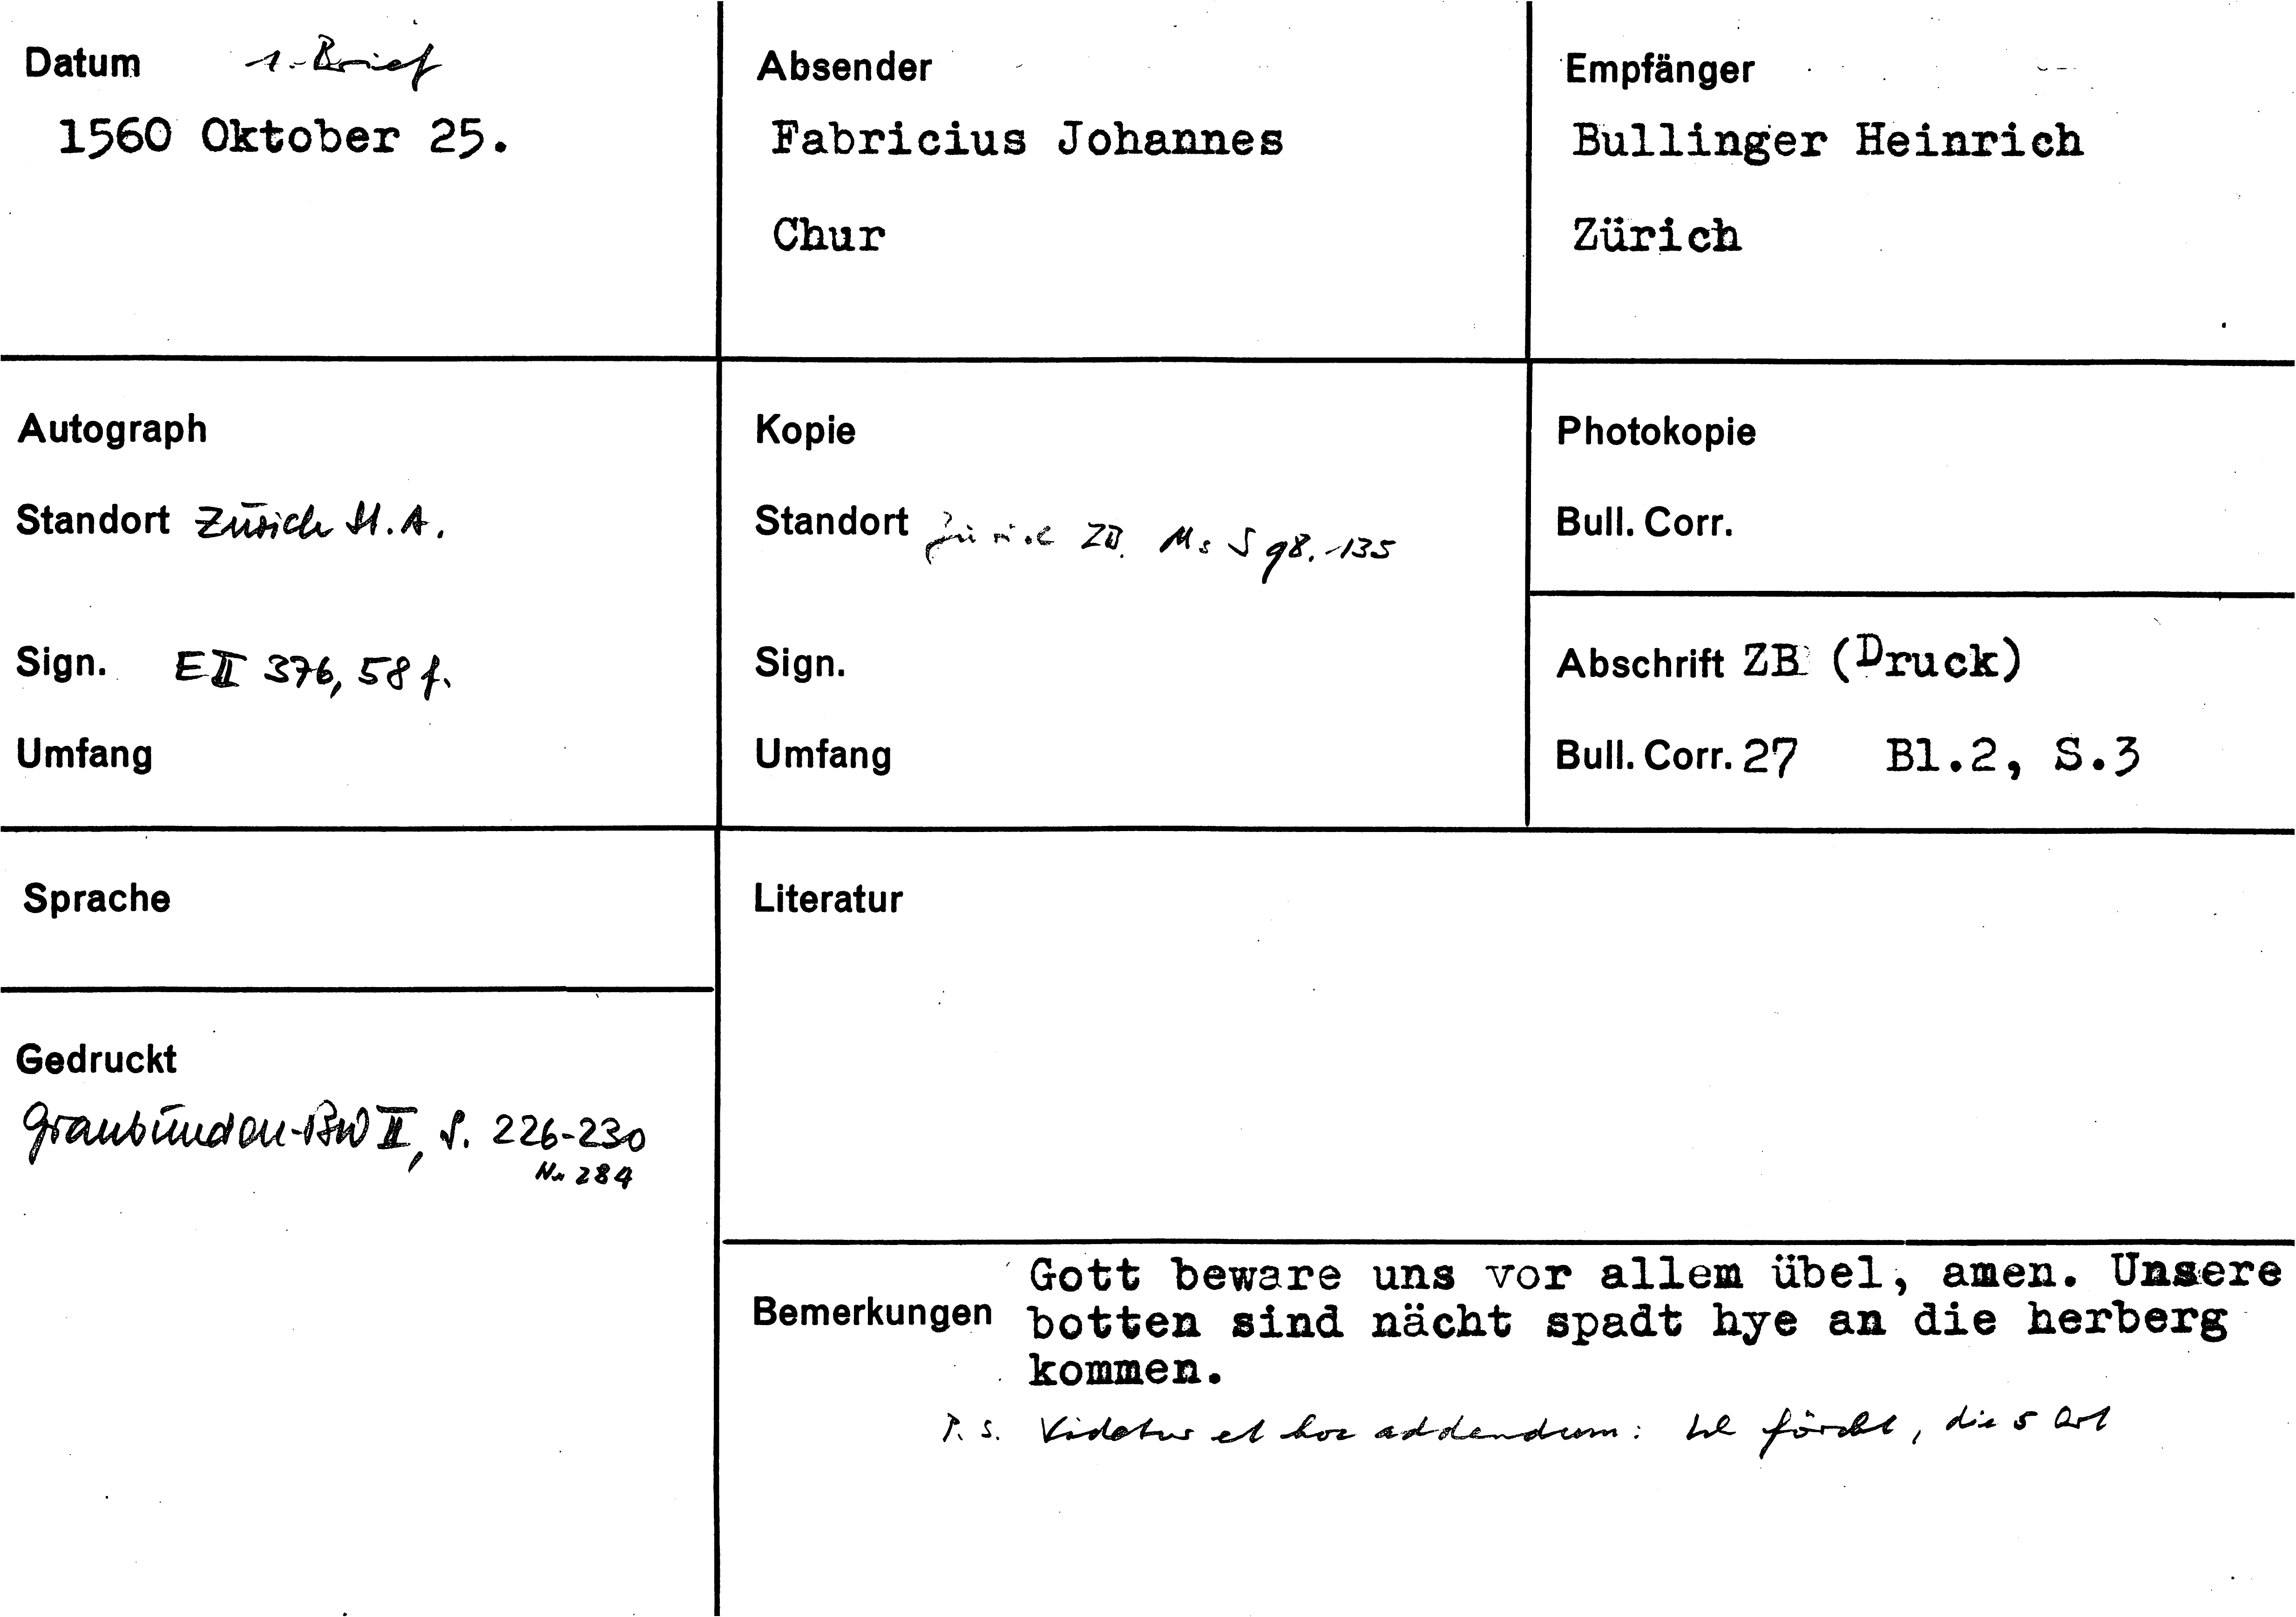 Datum 1. Brief
1560 Oktober 25.
Absender
Fabricius Johannes
Chur
Empfänger
Bullinger Heinrich
Zürich
Autograph
Standort Zürich St.A.
Sign. E II 376, 58 f.
Umfang
Kopie
Standort Zürich ZB. Ms S 98.-135
Sign.
Umfang
Photokopie
Bull. Corr.
Abschrift ZB (Druck)
Bull. Corr. 27 Bl.2, S.3
Sprache
Gedruckt
Graubünden-BW II, S. 226-230
Nr 284
Literatur
Bemerkungen
Gott beware uns vor allem übel, amen. Unsere
botten sind nächt spadt hye an die herberg
kommen.
P. S. Videtur et hoc addendum: förcht, die 5 Ort